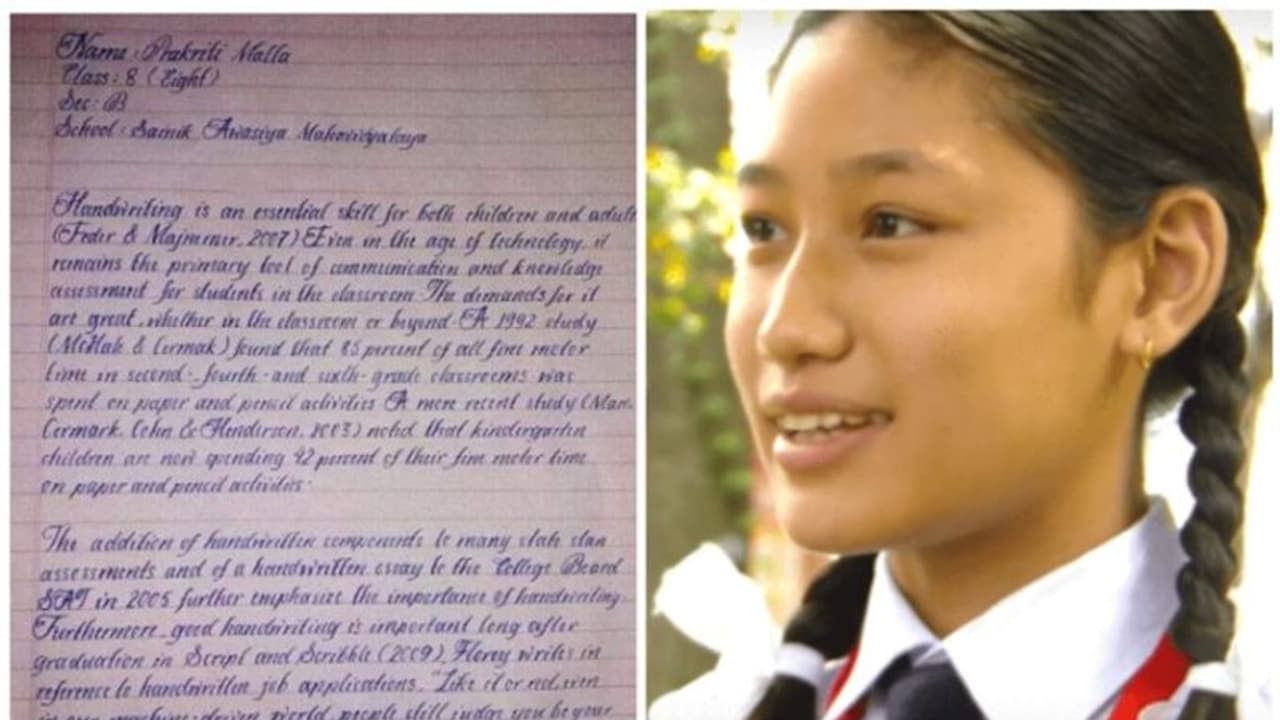 Name : Prakriti Malla
Class : 8 (Eight)
Sec : B
School : Sainik Awasiya Mahavidyalaya
Handwriting is an essential skill for both children and adults
(Feder & Majnemer, 2007) Even in the age of technology, it
remains the primary tool of communication and knowledge
assessment for students in the classroom. The demands for it
are great, whether in the classroom or beyond. A 1992 study
(McHale & Cermak) found that 85 percent of all fine motor
time in second-, fourth- and sixth-grade classrooms was
spent on paper and pencil activities. A more recent study (Marr,
Cermark, Cohn & Henderson, 2003) noted that kindergarten
children are now spending 42 percent of their fine motor time
on paper and pencil activities.
The addition of handwritten components to many state stan
assessments and of a handwritten essay to the College Board
SAT in 2005 further emphasize the importance of handwriting.
Furthermore, good handwriting is important long after
graduation in Script and Scribble (2009), Florey writes in
reference to handwritten job applications, "Like it or not, even
in our machine-driven world, people still judge you by your